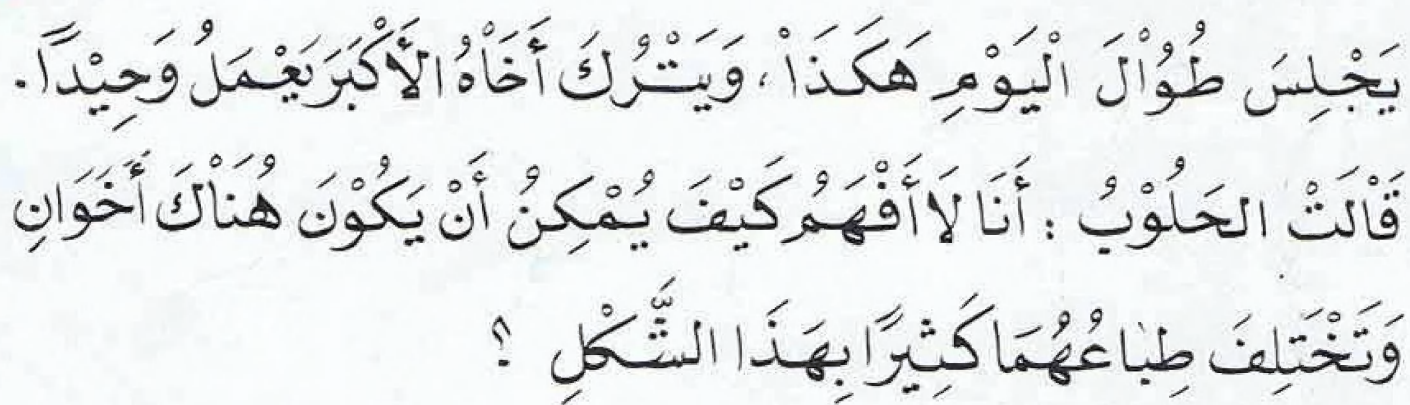 يَجْلِسَ طُوْالَ الْيَوْمِ هَكَذَاْ، وَيَتْرُكَ أَخَاْهُ الأَكْبَرَ يَعْمَلُ وَحِيْدًا.
قَالَتْ الحَلُوْبُ : أَنَا لَا أَفْهَمُ كَيْفَ يُمْكِنُ أَنْ يَكُوْنَ هُنَاْكَ أَخَوَانِ
وَتَخْتَلِفَ طِبَاعُهُمَا كَثِيرًا بِهَذَا الشَّكْلِ ؟